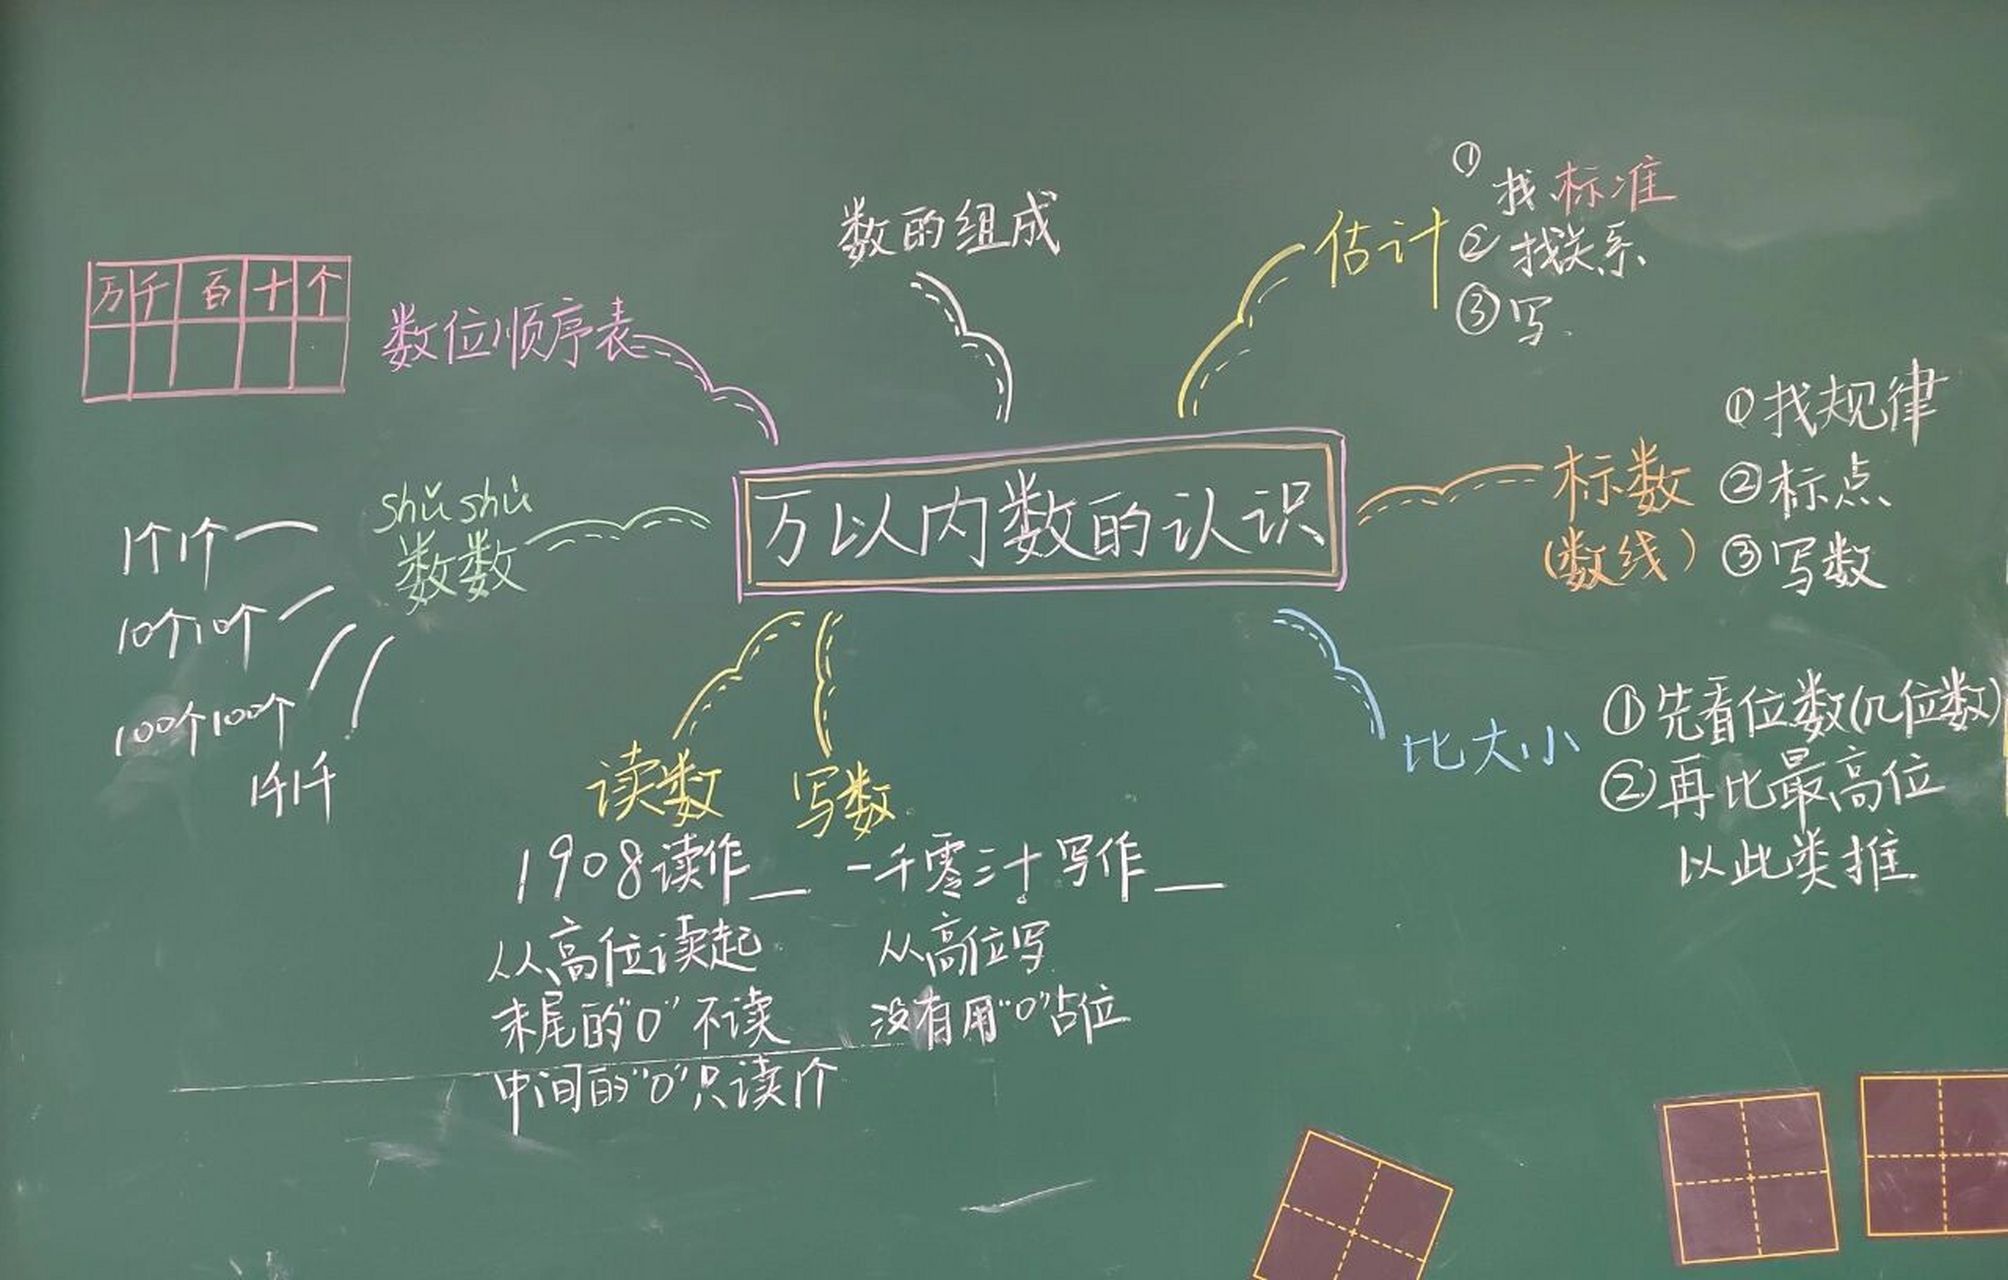 数的组成
估计
①找标准
②找关系
③写
万 千 百 十 个
数位顺序表
万以内数的认识
标数
(数线)
①找规律
②标点
③写数
shǔ shù
数数
1个1个
10个10个
100个100个
1千1千
比大小
①先看位数(几位数)
②再比最高位
以此类推
读数
1908读作__
从高位读起
末尾的"0"不读
中间的"0"只读1个
写数
一千零三十写作__
从高位写
没有用"0"占位